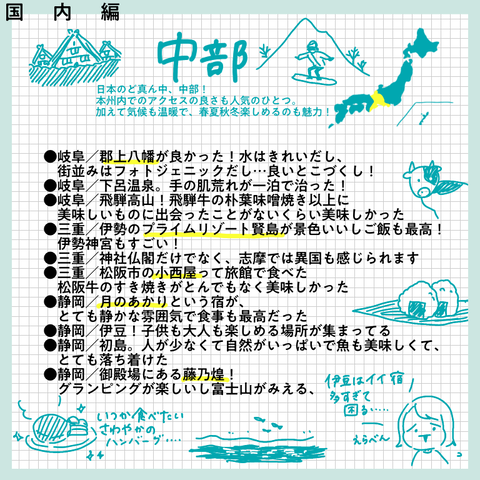 国内編
中部
日本のど真ん中、中部！
本州内でのアクセスの良さも人気のひとつ。
加えて気候も温暖で、春夏秋冬楽しめるのも魅力！
●岐阜／郡上八幡が良かった！水はきれいだし、
街並みはフォトジェニックだし…良いとこづくし！
●岐阜／下呂温泉。手の肌荒れが一泊で治った！
●岐阜／飛騨高山！飛騨牛の朴葉味噌焼き以上に
美味しいものに出会ったことがないくらい美味しかった
●三重／伊勢のプライムリゾート賢島が景色いいしご飯も最高！
伊勢神宮もすごい！
●三重／神社仏閣だけでなく、志摩では異国も感じられます
●三重／松阪市の小西屋って旅館で食べた
松阪牛のすき焼きがとんでもなく美味しかった
●静岡／月のあかりという宿が、
とても静かな雰囲気で食事も最高だった
●静岡／伊豆！子供も大人も楽しめる場所が集まってる
●静岡／初島。人が少なくて自然がいっぱいで魚も美味しくて、
とても落ち着けた
●静岡／御殿場にある藤乃煌！
グランピングが楽しいし富士山がみえる、
いつか食べたい
さわやかの
ハンバーグ‥‥
伊豆はイイ宿
多すぎて
困る‥‥
えらべん